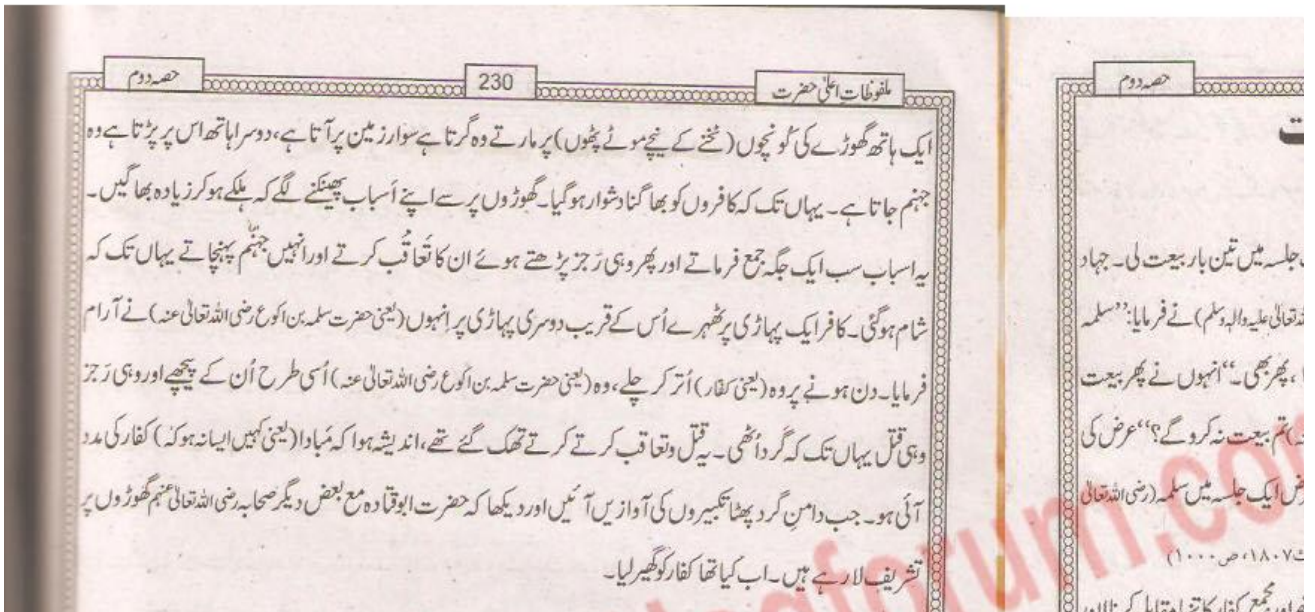 ملفوظات اعلیٰ حضرت 230 حصہ دوم
ایک ہاتھ گھوڑے کی کُونچوں (ٹخنے کے نیچے موٹے پٹھوں) پر مارتے وہ گرتا ہے سوار زمین پر آتا ہے، دوسرا ہاتھ اس پر پڑتا ہے وہ
جہنم جاتا ہے۔ یہاں تک کہ کافروں کو بھاگنا دشوار ہوگیا۔ گھوڑوں پر سے اپنے اَسباب پھینکنے لگے کہ ہلکے ہوکر زیادہ بھاگیں۔
یہ اسباب سب ایک جگہ جمع فرماتے اور پھر وہی رَجز پڑھتے ہوئے ان کا تَعاقُب کرتے اور انہیں جہنَّم پہنچاتے یہاں تک کہ
شام ہوگئی۔ کافر ایک پہاڑی پر ٹھہرے اُس کے قریب دوسری پہاڑی پر اِنہوں (یعنی حضرت سلمہ بن اکوع رضی اللہ تعالیٰ عنہ) نے آرام
فرمایا۔ دن ہونے پر وہ (یعنی کفار) اُتر کر چلے، وہ (یعنی حضرت سلمہ بن اکوع رضی اللہ تعالیٰ عنہ) اُسی طرح اُن کے پیچھے اور وہی رَجز
وہی قتل یہاں تک کہ گرد اُٹھی۔ یہ قتل وتعاقب کرتے کرتے تھک گئے تھے، اندیشہ ہوا کہ مَبادا (یعنی کہیں ایسا نہ ہو کہ) کفار کی مدد
آئی ہو۔ جب دامنِ گرد پھٹا تکبیروں کی آوازیں آئیں اور دیکھا کہ حضرت ابوقتادہ مع بعض دیگر صحابہ رضی اللہ تعالیٰ عنہم گھوڑوں پر
تشریف لا رہے ہیں۔ اب کیا تھا کفار کو گھیر لیا۔
حصہ دوم
جلسہ میں تین بار بیعت لی۔ جہاد
تعالیٰ علیہ واٰلہٖ وسلم) نے فرمایا: ”سلمہ
، پھر بھی۔“ انہوں نے پھر بیعت
تم بیعت نہ کرو گے؟“ عرض کی
ایک جلسہ میں سلمہ (رضی اللہ تعالیٰ
۱۸۰۷، ص ۱۰۰۰)
forum.com